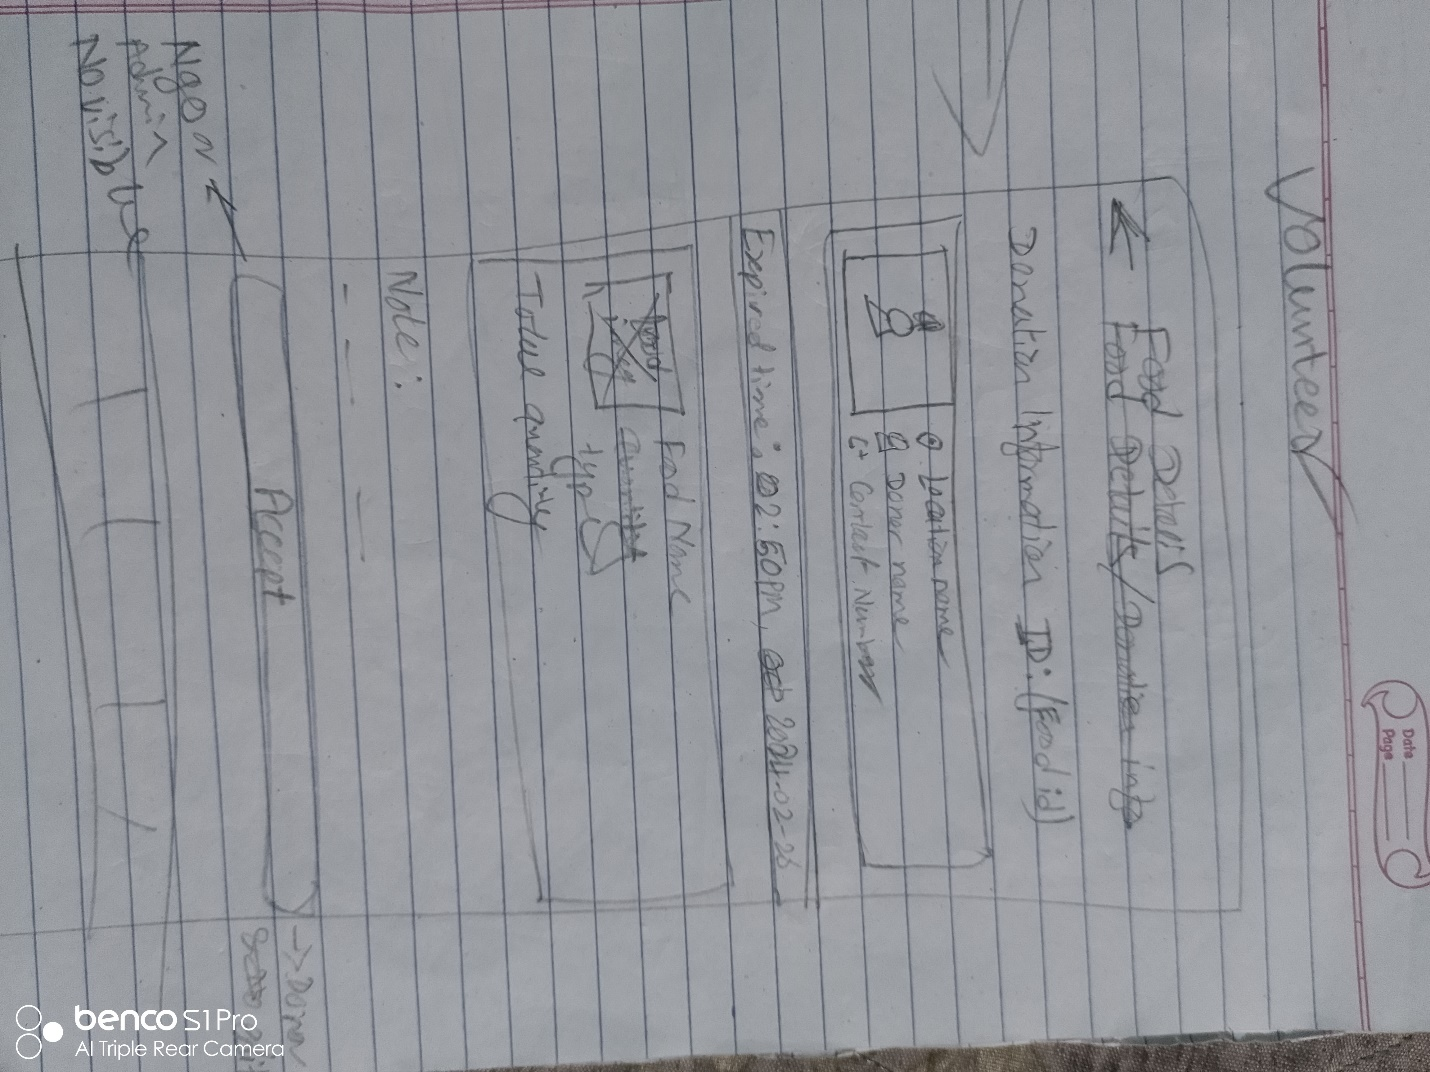 Date
Page
Volunteer
Food Details
Food Details/Donation info
Donation Information ID: (Food id)
Location name
Donor name
Contact Number
Expired time: 02:50PM, 2024-02-26
Food Name
food
Quantity
type
Total quantity
Note:
Accept
→ Donor
Ngo or
Admin
No visible
benco S1 Pro
AI Triple Rear Camera